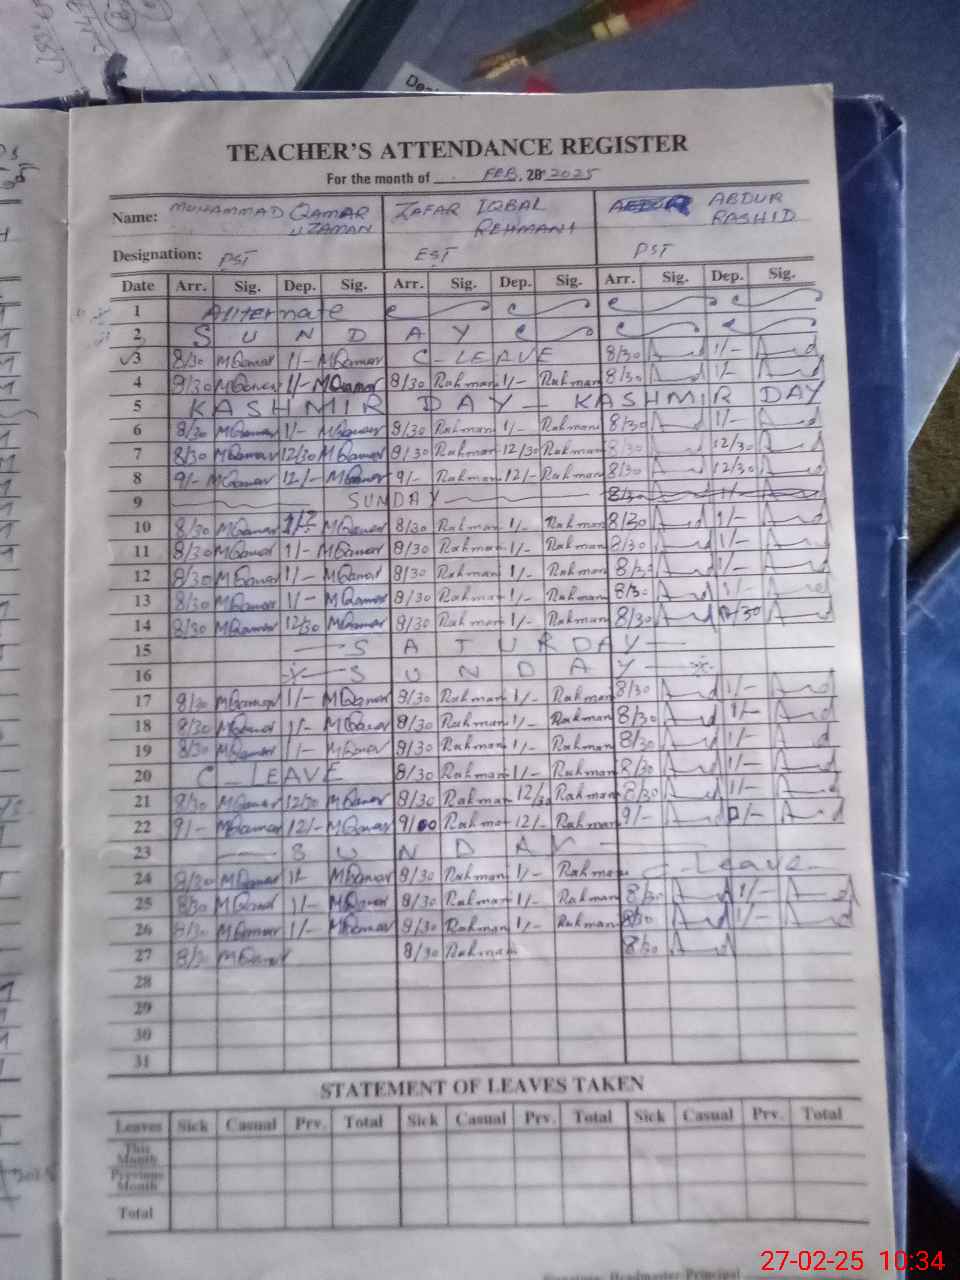 TEACHER'S ATTENDANCE REGISTER
For the month of FEB, 20 2025
Name: MUHAMMAD QAMAR UZAMAN ZAFAR IQBAL REHMANI ABDUR RASHID
Designation: PST EST PST
Date Arr. Sig. Dep. Sig. Arr. Sig. Dep. Sig. Arr. Sig. Dep. Sig.
1 Alternate
2 SUNDAY
3 8/30 MQamar 1/- MQamar C-LEAVE 8/30 1/-
4 8/30 MQamar 1/- MQamar 8/30 Rahman 1/- Rahman 8/30 1/-
5 KASHMIR DAY - KASHMIR DAY
6 8/30 MQamar 1/- MQamar 8/30 Rahman 1/- Rahman 8/30 1/-
7 8/30 MQamar 12/30 MQamar 8/30 Rahman 12/30 Rahman 8/30 12/30
8 9/- MQamar 12/- MQamar 9/- Rahman 12/- Rahman 8/30 12/30
9 SUNDAY 1/-
10 8/30 MQamar MQamar 8/30 Rahman 1/- Rahman 8/30 1/-
11 8/30 MQamar 1/- MQamar 8/30 Rahman 1/- Rahman 8/30 1/-
12 8/30 MQamar 1/- MQamar 8/30 Rahman 1/- Rahman 8/30 1/-
13 8/30 MQamar 1/- MQamar 8/30 Rahman 1/- Rahman 8/30 1/-
14 8/30 MQamar 12/30 MQamar 8/30 Rahman 1/- Rahman 8/30 12/30
15 SATURDAY
16 SUNDAY
17 8/30 MQamar 1/- MQamar 8/30 Rahman 1/- Rahman 8/30 1/-
18 8/30 MQamar 1/- MQamar 8/30 Rahman 1/- Rahman 8/30 1/-
19 8/30 MQamar 1/- MQamar 8/30 Rahman 1/- Rahman 8/30 1/-
20 C-LEAVE 8/30 Rahman 1/- Rahman 8/30 1/-
21 8/30 MQamar 12/30 MQamar 8/30 Rahman 12/30 Rahman 8/30 1/-
22 9/- MQamar 12/- MQamar 9/00 Rahman 12/- Rahman 9/- /-
23 SUNDAY
24 8/30 MQamar 1/- MQamar 8/30 Rahman 1/- Rahman C-Leave-
25 8/30 MQamar 1/- MQamar 8/30 Rahman 1/- Rahman 8/30 1/-
26 8/30 MQamar 1/- MQamar 8/30 Rahman 1/- Rahman 8/30 1/-
27 8/30 MQamar 8/30 Rahman 8/30
28
29
30
31
STATEMENT OF LEAVES TAKEN
Leaves Sick Casual Prv. Total Sick Casual Prv. Total Sick Casual Prv. Total
This Month
Previous Month
Total
27-02-25 10:34